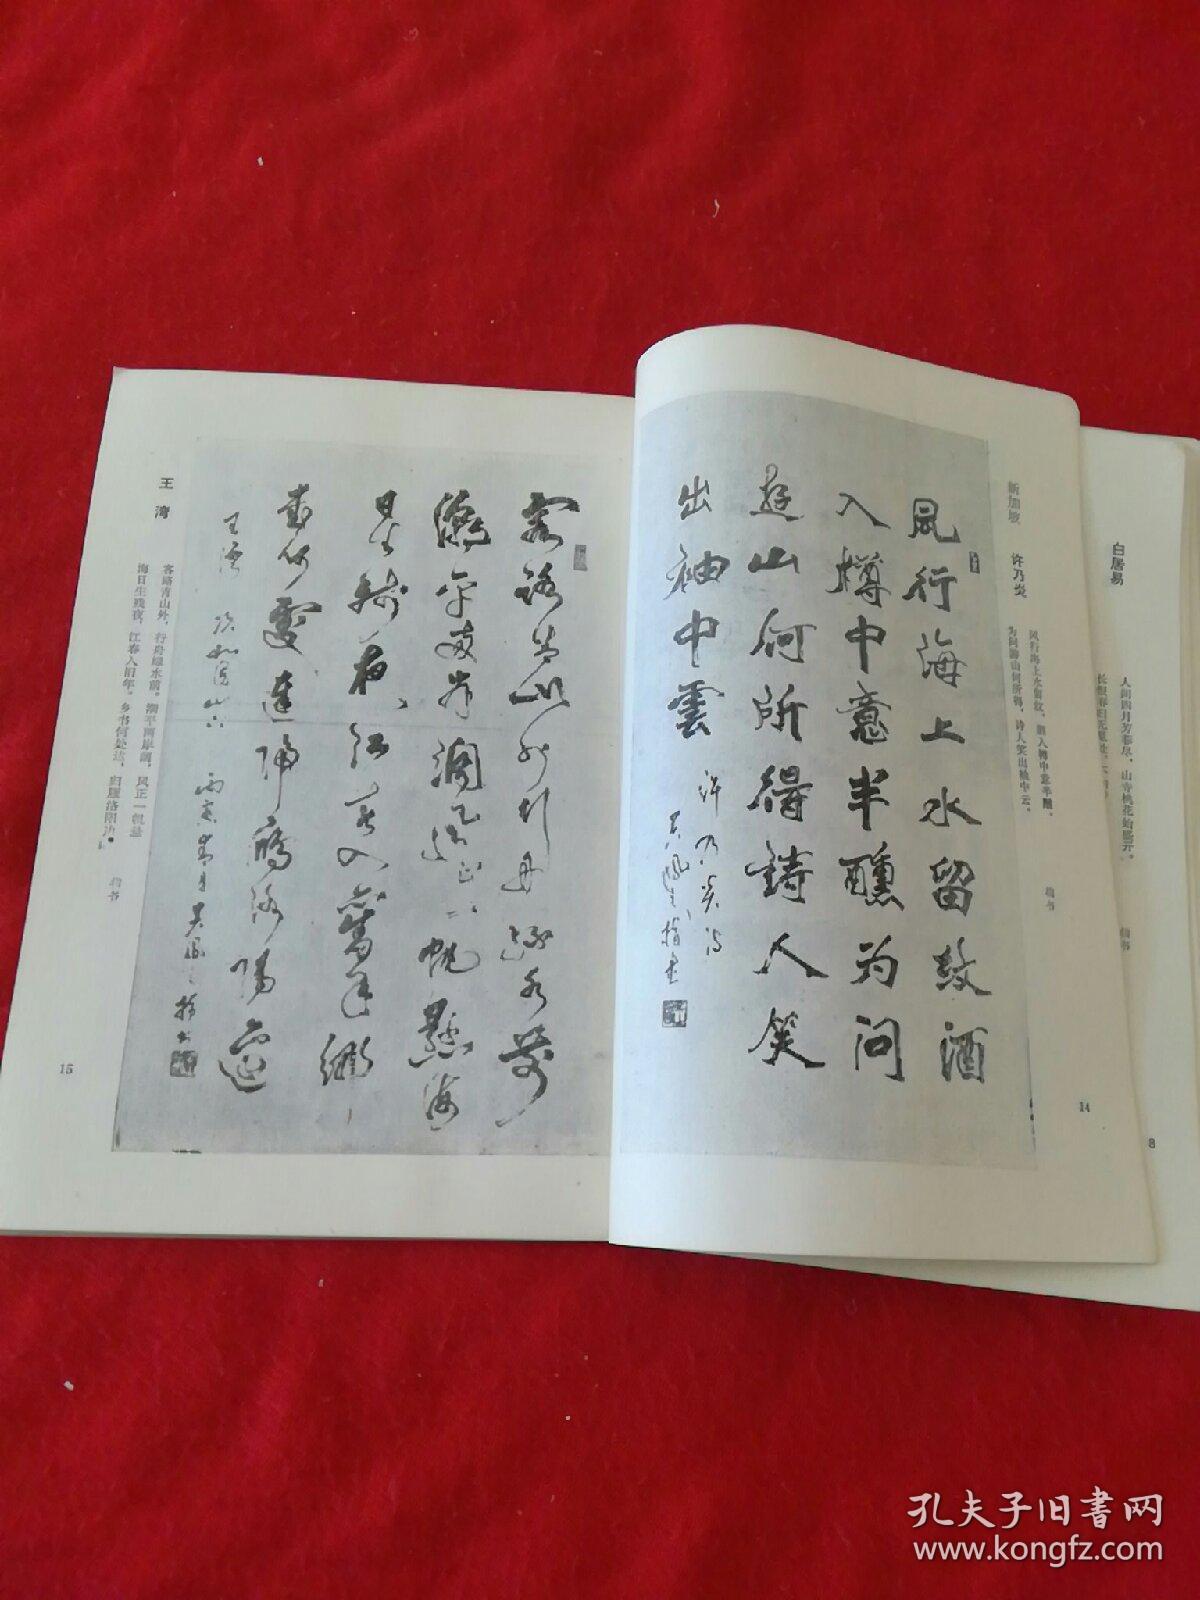 白居易
人间四月芳菲尽，山寺桃花始盛开。
长恨春归无觅处，
8
新加坡
许乃炎
风行海上水留纹，酒入樽中意半醺，
为问游山何所得，诗人笑出袖中云。
指书
14
风行海上水留紋酒
入樽中意半醺为问
遊山何所得詩人笑
出袖中雲
许乃炎诗
指书
王湾
客路青山外，行舟绿水前。潮平两岸阔，风正一帆悬
海日生残夜，江春入旧年。乡书何处达，归雁洛阳边。
指书
15
客路青山外行舟绿水前
潮平两岸阔风正一帆悬海
日生残夜江春入舊年鄉
書何處達歸雁洛陽邊
王湾 次北固山下 丙寅
指书
孔夫子旧书网
www.kongfz.com